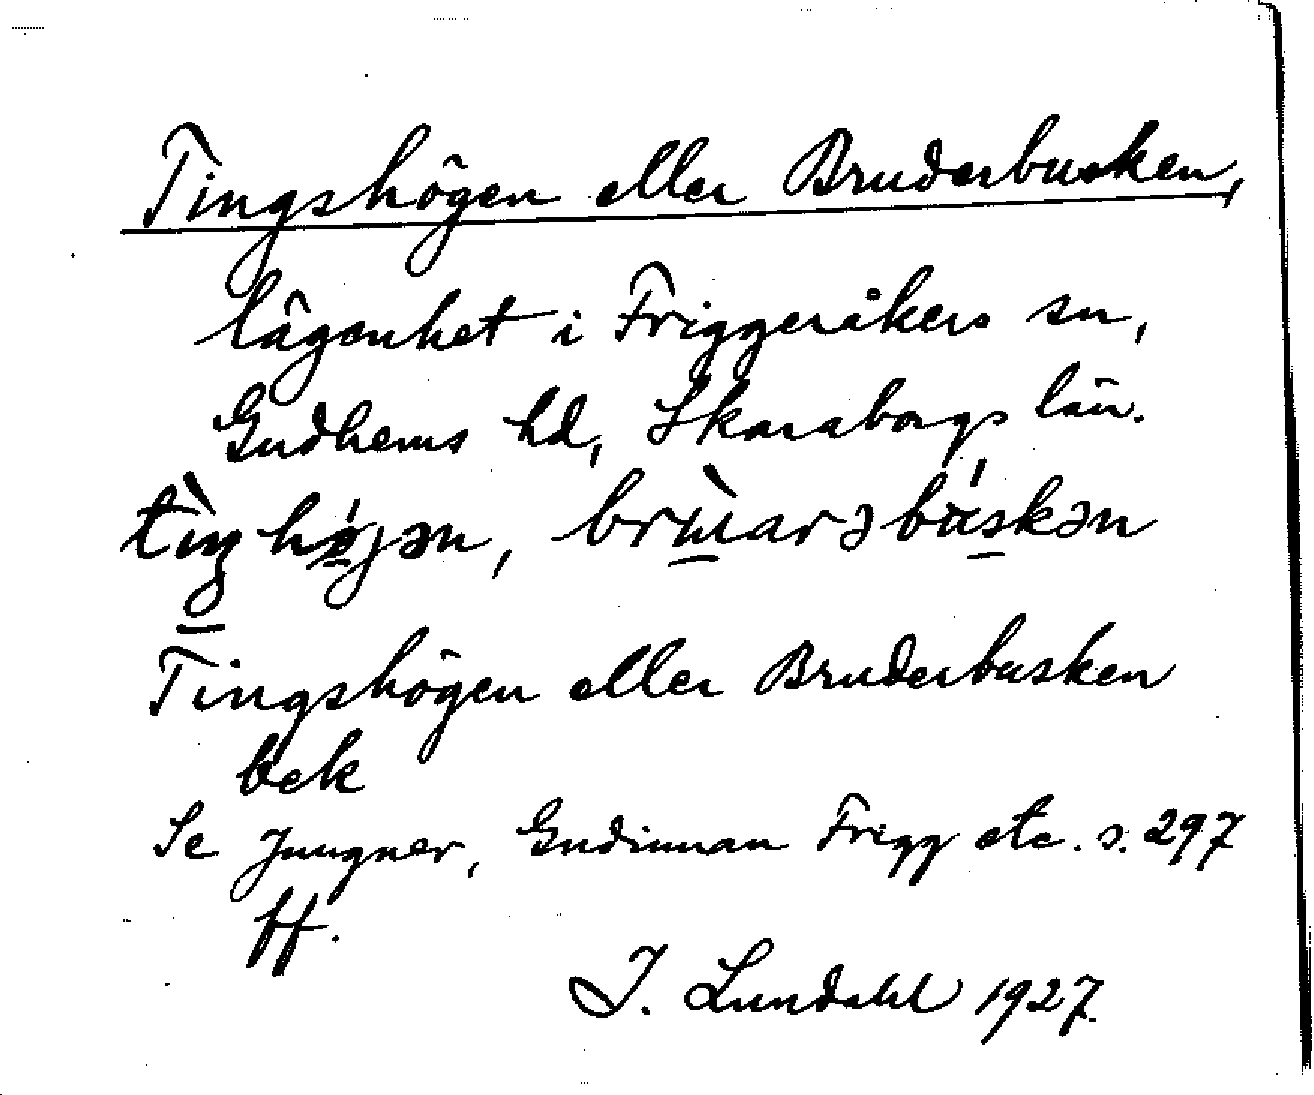 Tingshögen eller Bruderbusken,
lägenhet i Friggeråkers sn,
Gudhems hd, Skaraborgs län.
tìŋhǿjən, brɯ̀arəbúskən
Tingshögen eller Bruderbusken
bek
Se Jungner, Gudinnan Frigg etc. s. 297
ff.
I. Lundahl 1927.